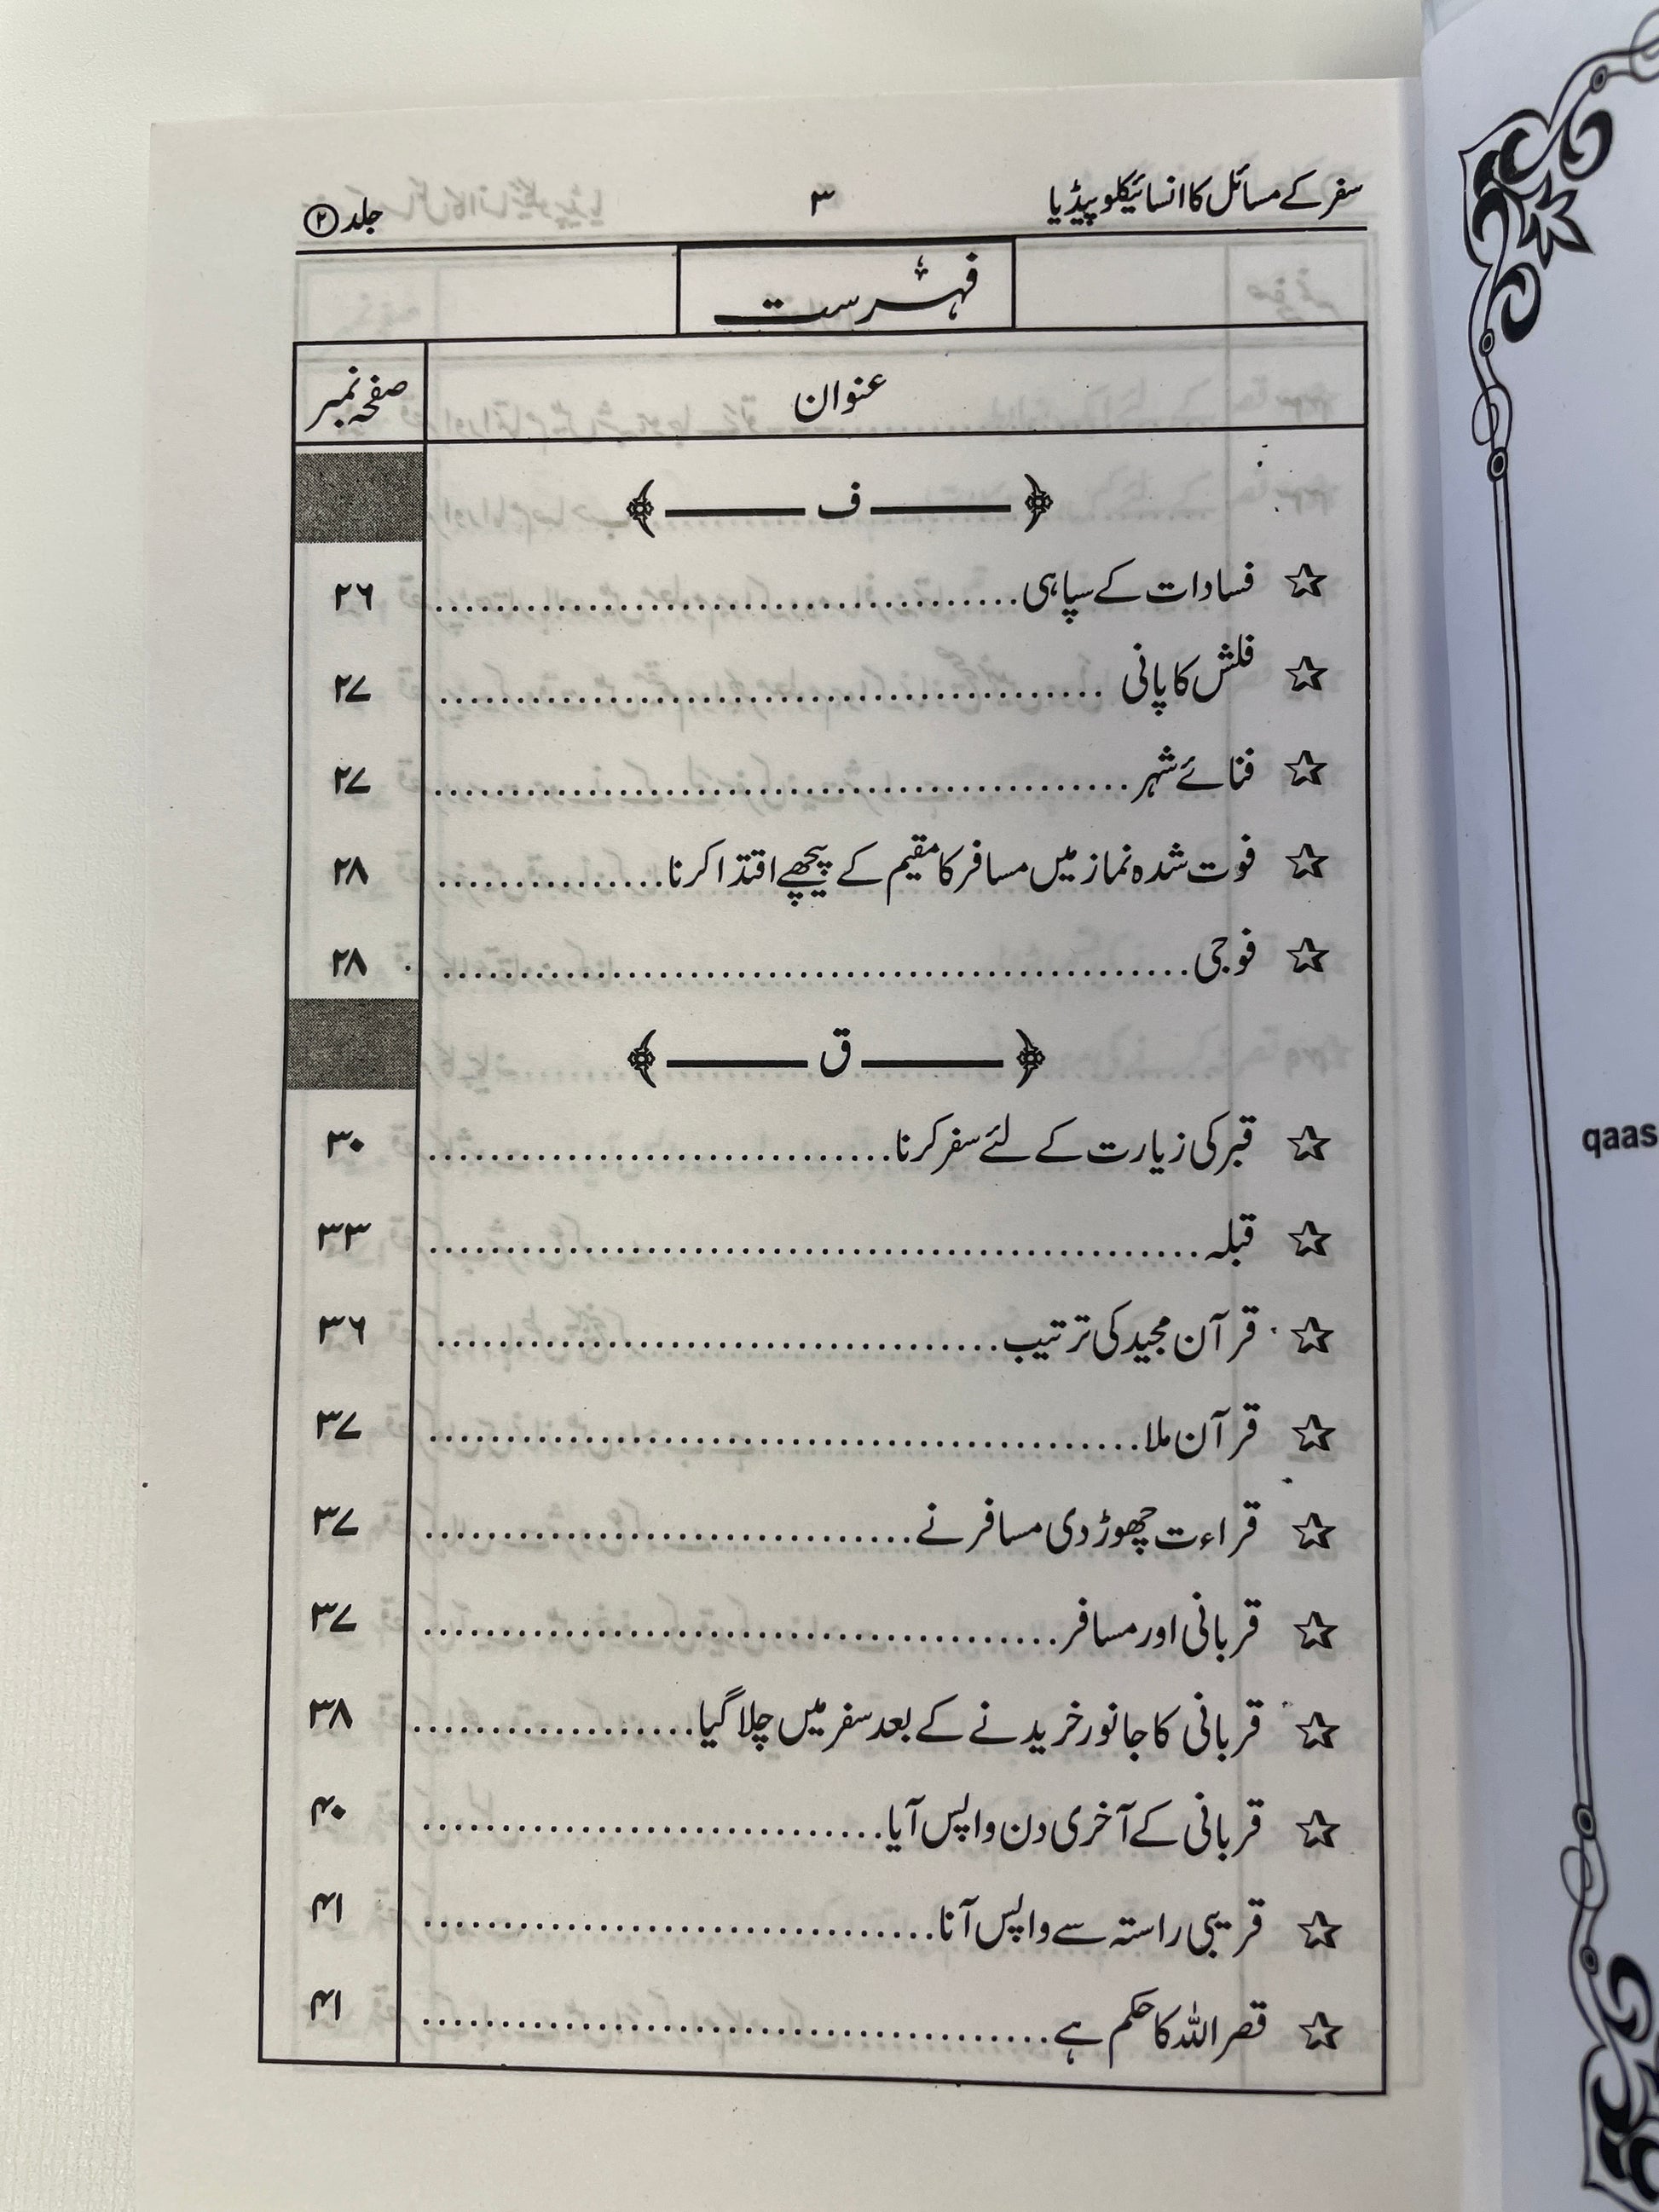 سفر کے مسائل کا انسائیکلوپیڈیا ۳ جلد ②
فہرست
عنوان صفحہ نمبر
ف
☆ فسادات کے سپاہی ۲۶
☆ فلش کا پانی ۲۷
☆ فنائے شہر ۲۷
☆ فوت شدہ نماز میں مسافر کا مقیم کے پیچھے اقتدا کرنا ۲۸
☆ فوجی ۲۸
ق
☆ قبر کی زیارت کے لئے سفر کرنا ۳۰
☆ قبلہ ۳۳
☆ قرآن مجید کی ترتیب ۳۶
☆ قرآن ملا ۳۷
☆ قراءت چھوڑ دی مسافر نے ۳۷
☆ قربانی اور مسافر ۳۷
☆ قربانی کا جانور خریدنے کے بعد سفر میں چلا گیا ۳۸
☆ قربانی کے آخری دن واپس آیا ۴۰
☆ قریبی راستہ سے واپس آنا ۴۱
☆ قصر اللہ کا حکم ہے ۴۱
qaas